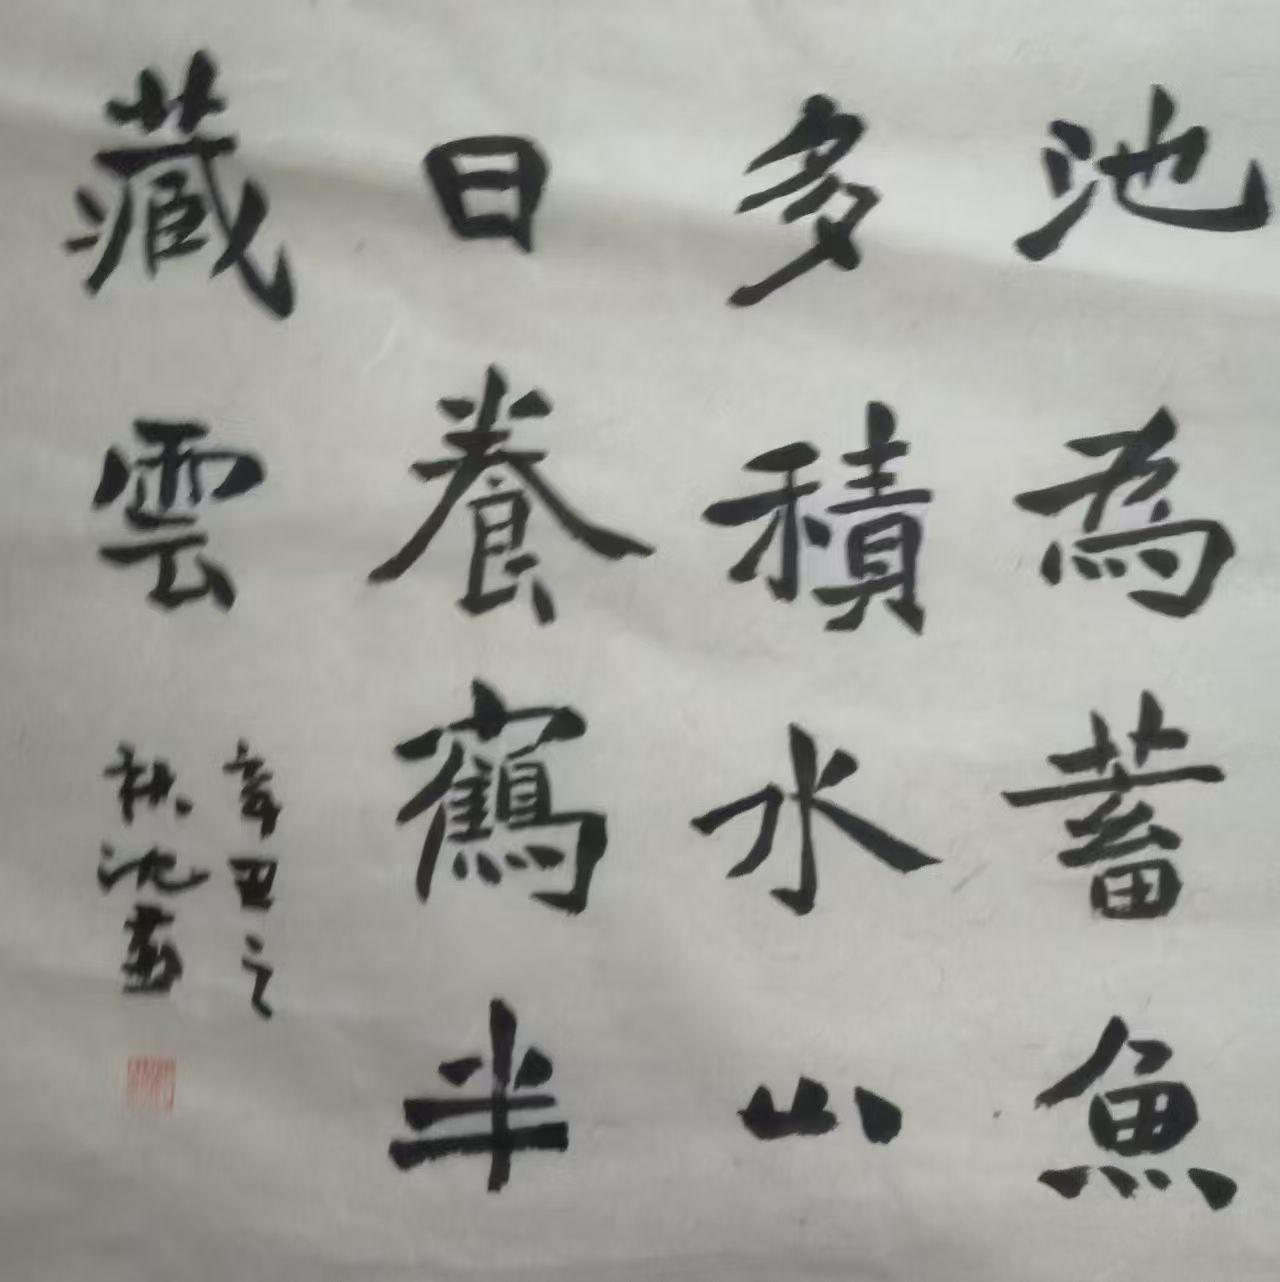 池為蓄魚
多積水山
日養鶴半
藏雲
辛丑之
秋沈